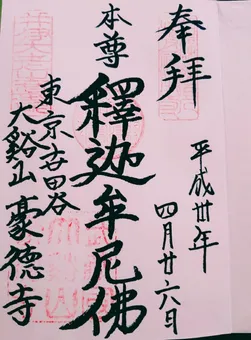 奉拜
平成卅年
四月廿六日
本尊
釋迦牟尼佛
東京世田谷
大谿山豪德寺